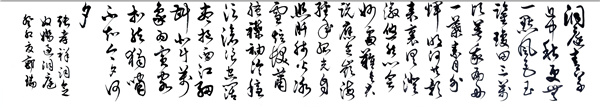 洞庭青草
近中秋更無
一點風色玉
鑒瓊田三萬
頃著我扁舟
一葉素月分
輝明河共影
表裏俱澄澈
悠然心會
妙處難與君
說應念嶺海
經年孤光自
照肝肺皆冰
雪短髮蕭
騷襟袖冷穩
泛滄浪空闊
盡挹西江細
斟北斗萬
象為賓客
扣舷獨嘯
不知今夕何
夕
張孝祥詞念
奴嬌過洞庭